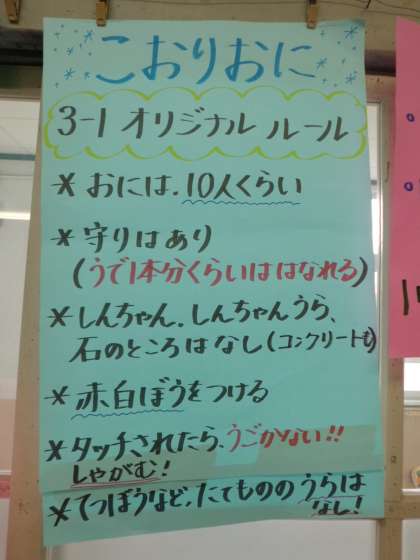 こおりおに
3-1 オリジナル ルール
* おには、10人くらい
* 守りはあり
(うで1本分くらいははなれる)
* しんちゃん、しんちゃんうら、
石のところはなし(コンクリートも)
* 赤白ぼうをつける
* タッチされたら、うごかない!!
しゃがむ!
* てつぼうなど、たてもののうらは
なし!